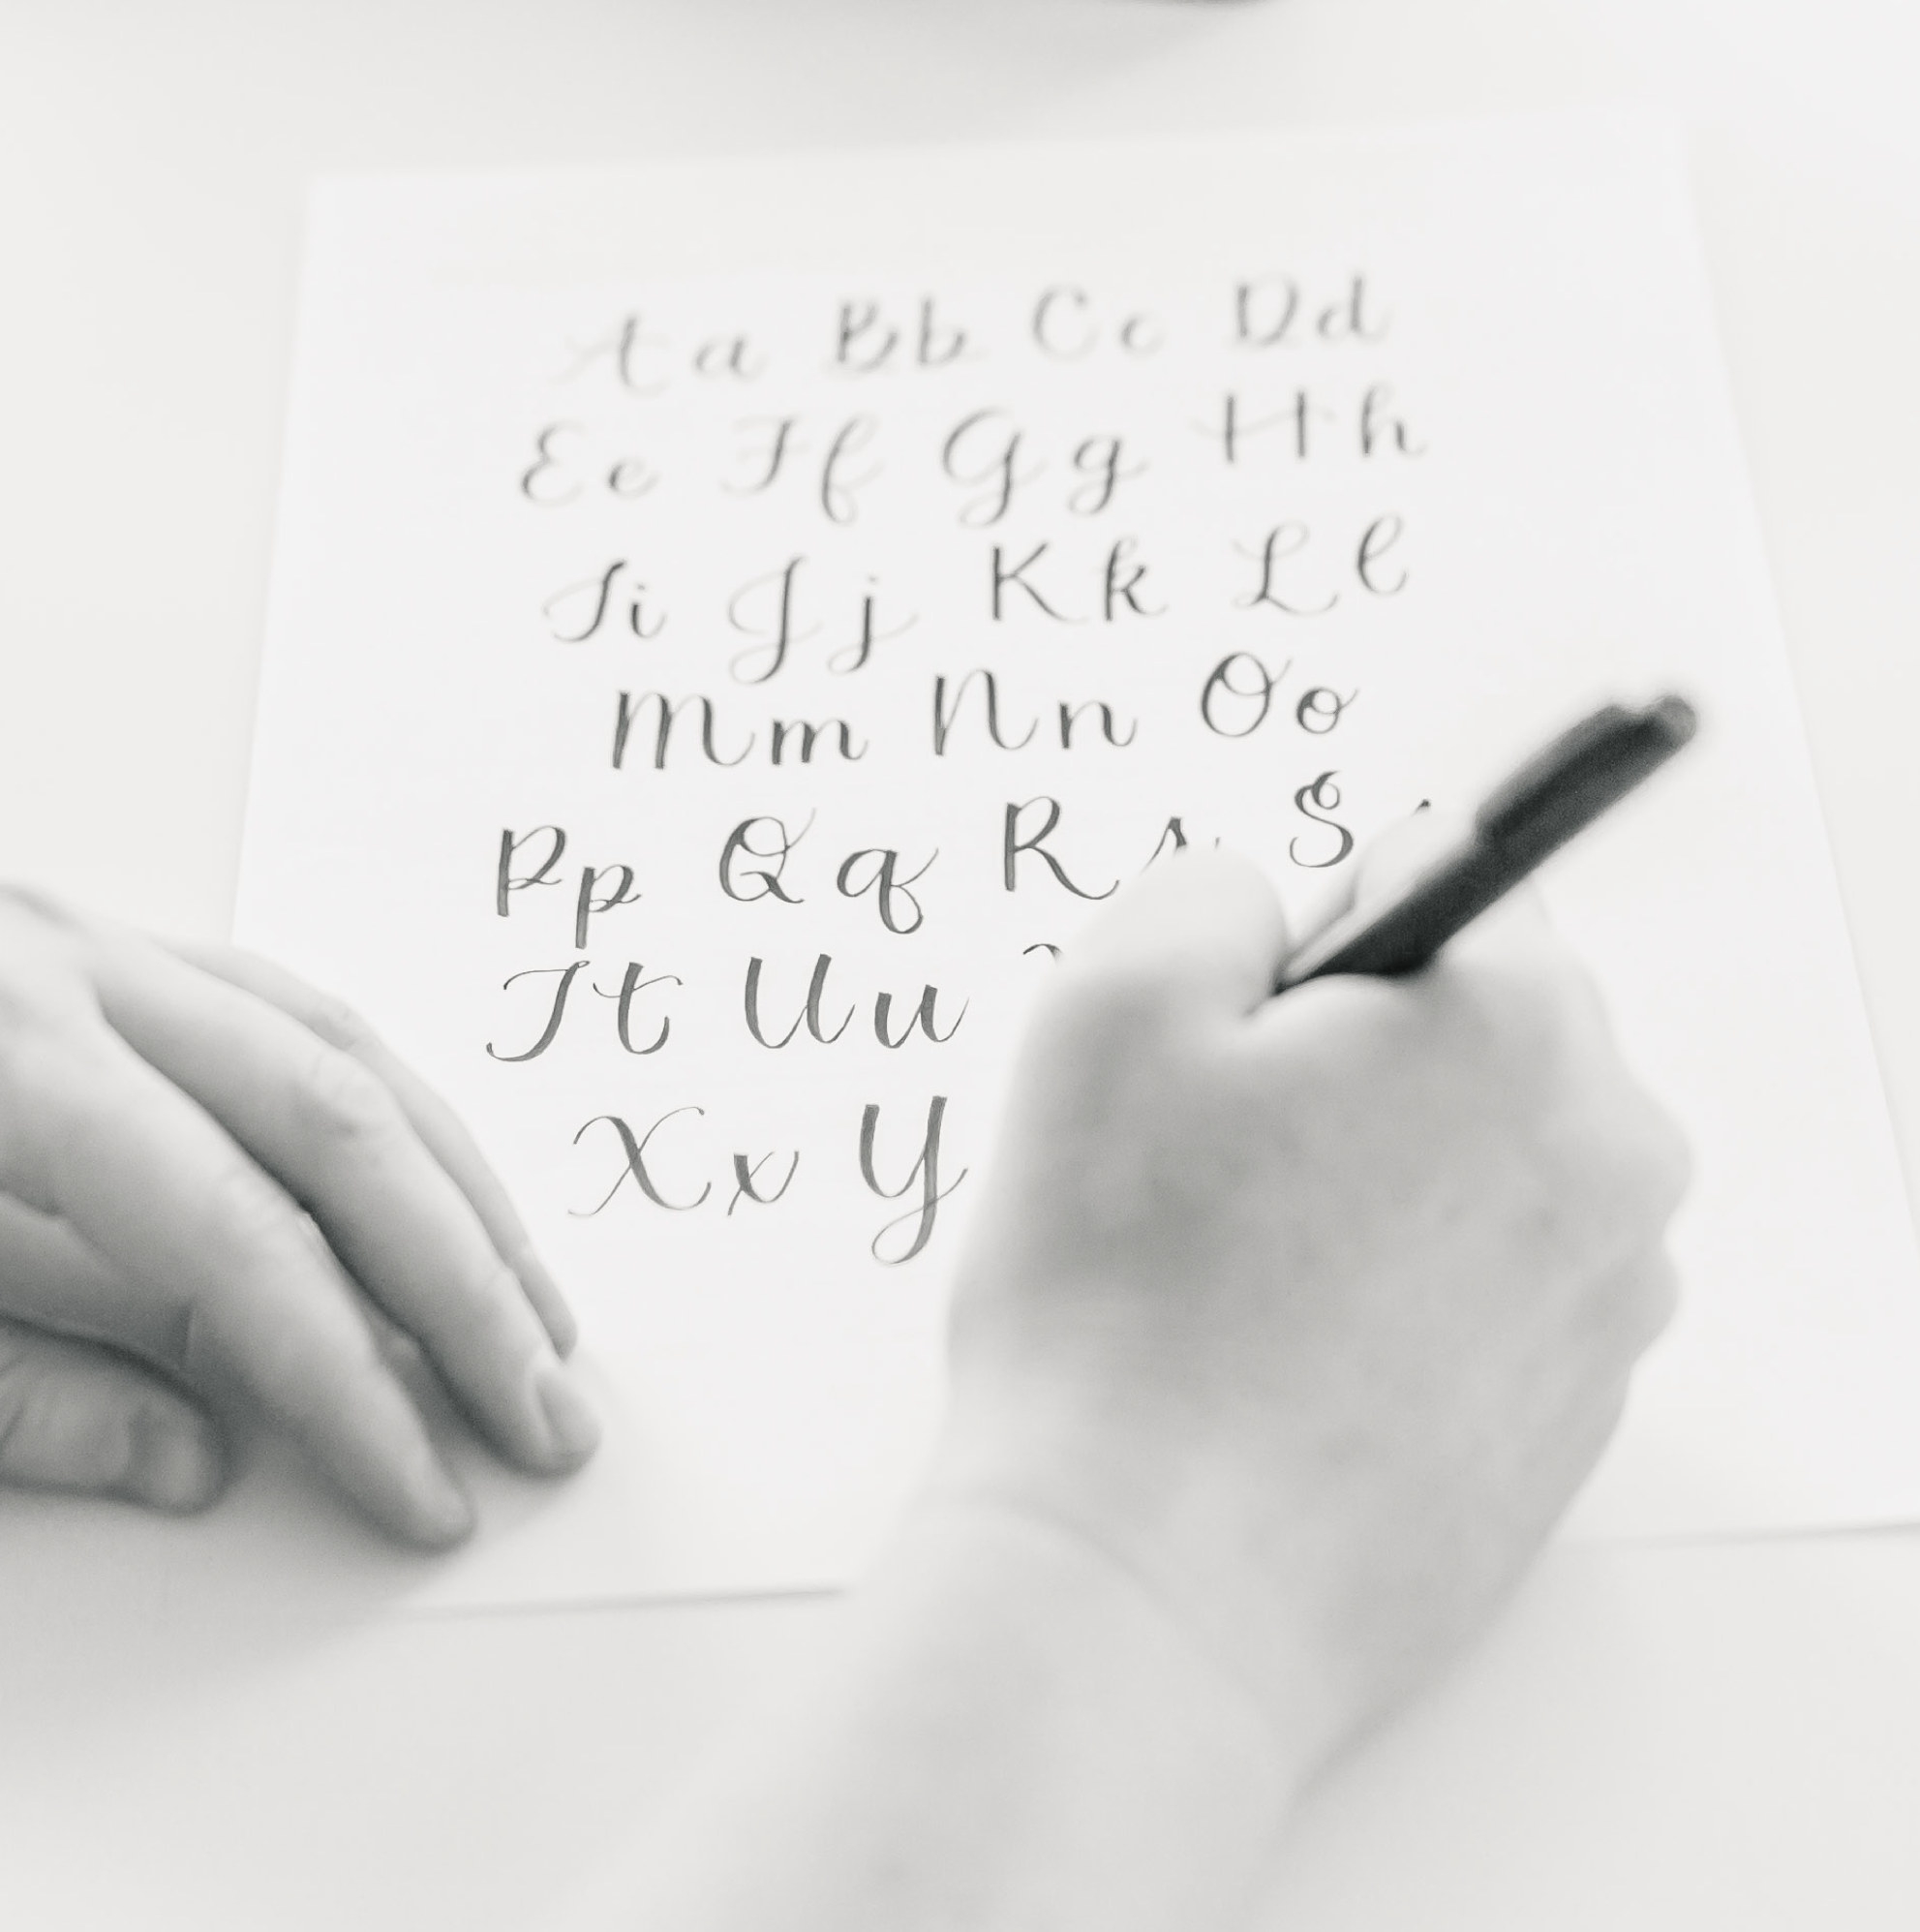 Aa Bb Cc Dd
Ee Ff Gg Hh
Ii Jj Kk Ll
Mm Nn Oo
Pp Qq Rr S
Tt Uu
Xx Y